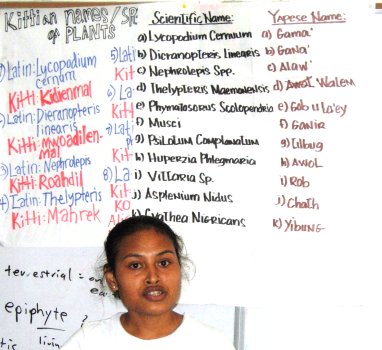 Kittian names/SP.
of PLANTS
Latin: Lycopodium
cernum
Kitti: Kidienmal
Latin: Dieranopteris
linearis
Kitti: Mwoadilen-
mal
3) Latin: Nephrolepis
Kitti: Roahdil
4) Latin: Thelypteris
Kitti: Mahrek
5) Lati
Kit
6) La
Kit
7) Lati
Kit
8) La
Kit
KO
Scientific Name:
a) Lycopodium Cernuum
b) Dicranopteris Linearis
c) Nephrolepis Spp.
d) Thelypteris Maemonensis
e) Phymatosorus Scolopendria
f) Musci
g) Psilotum Complanatum
h) Huperzia Phlegmaria
i) Vittaria Sp.
j) Asplenium Nidus
k) Cyathea Nigricans
Yapese Name:
a) Gamaˈ
b) Ganaˈ
c) Alawˈ
d) Walem
e) Gob u la'ey
f) Gamir
g) Tilbug
h) Awol
i) Rob
j) Chath
k) Yibung
terrestrial =
epiphyte
livin